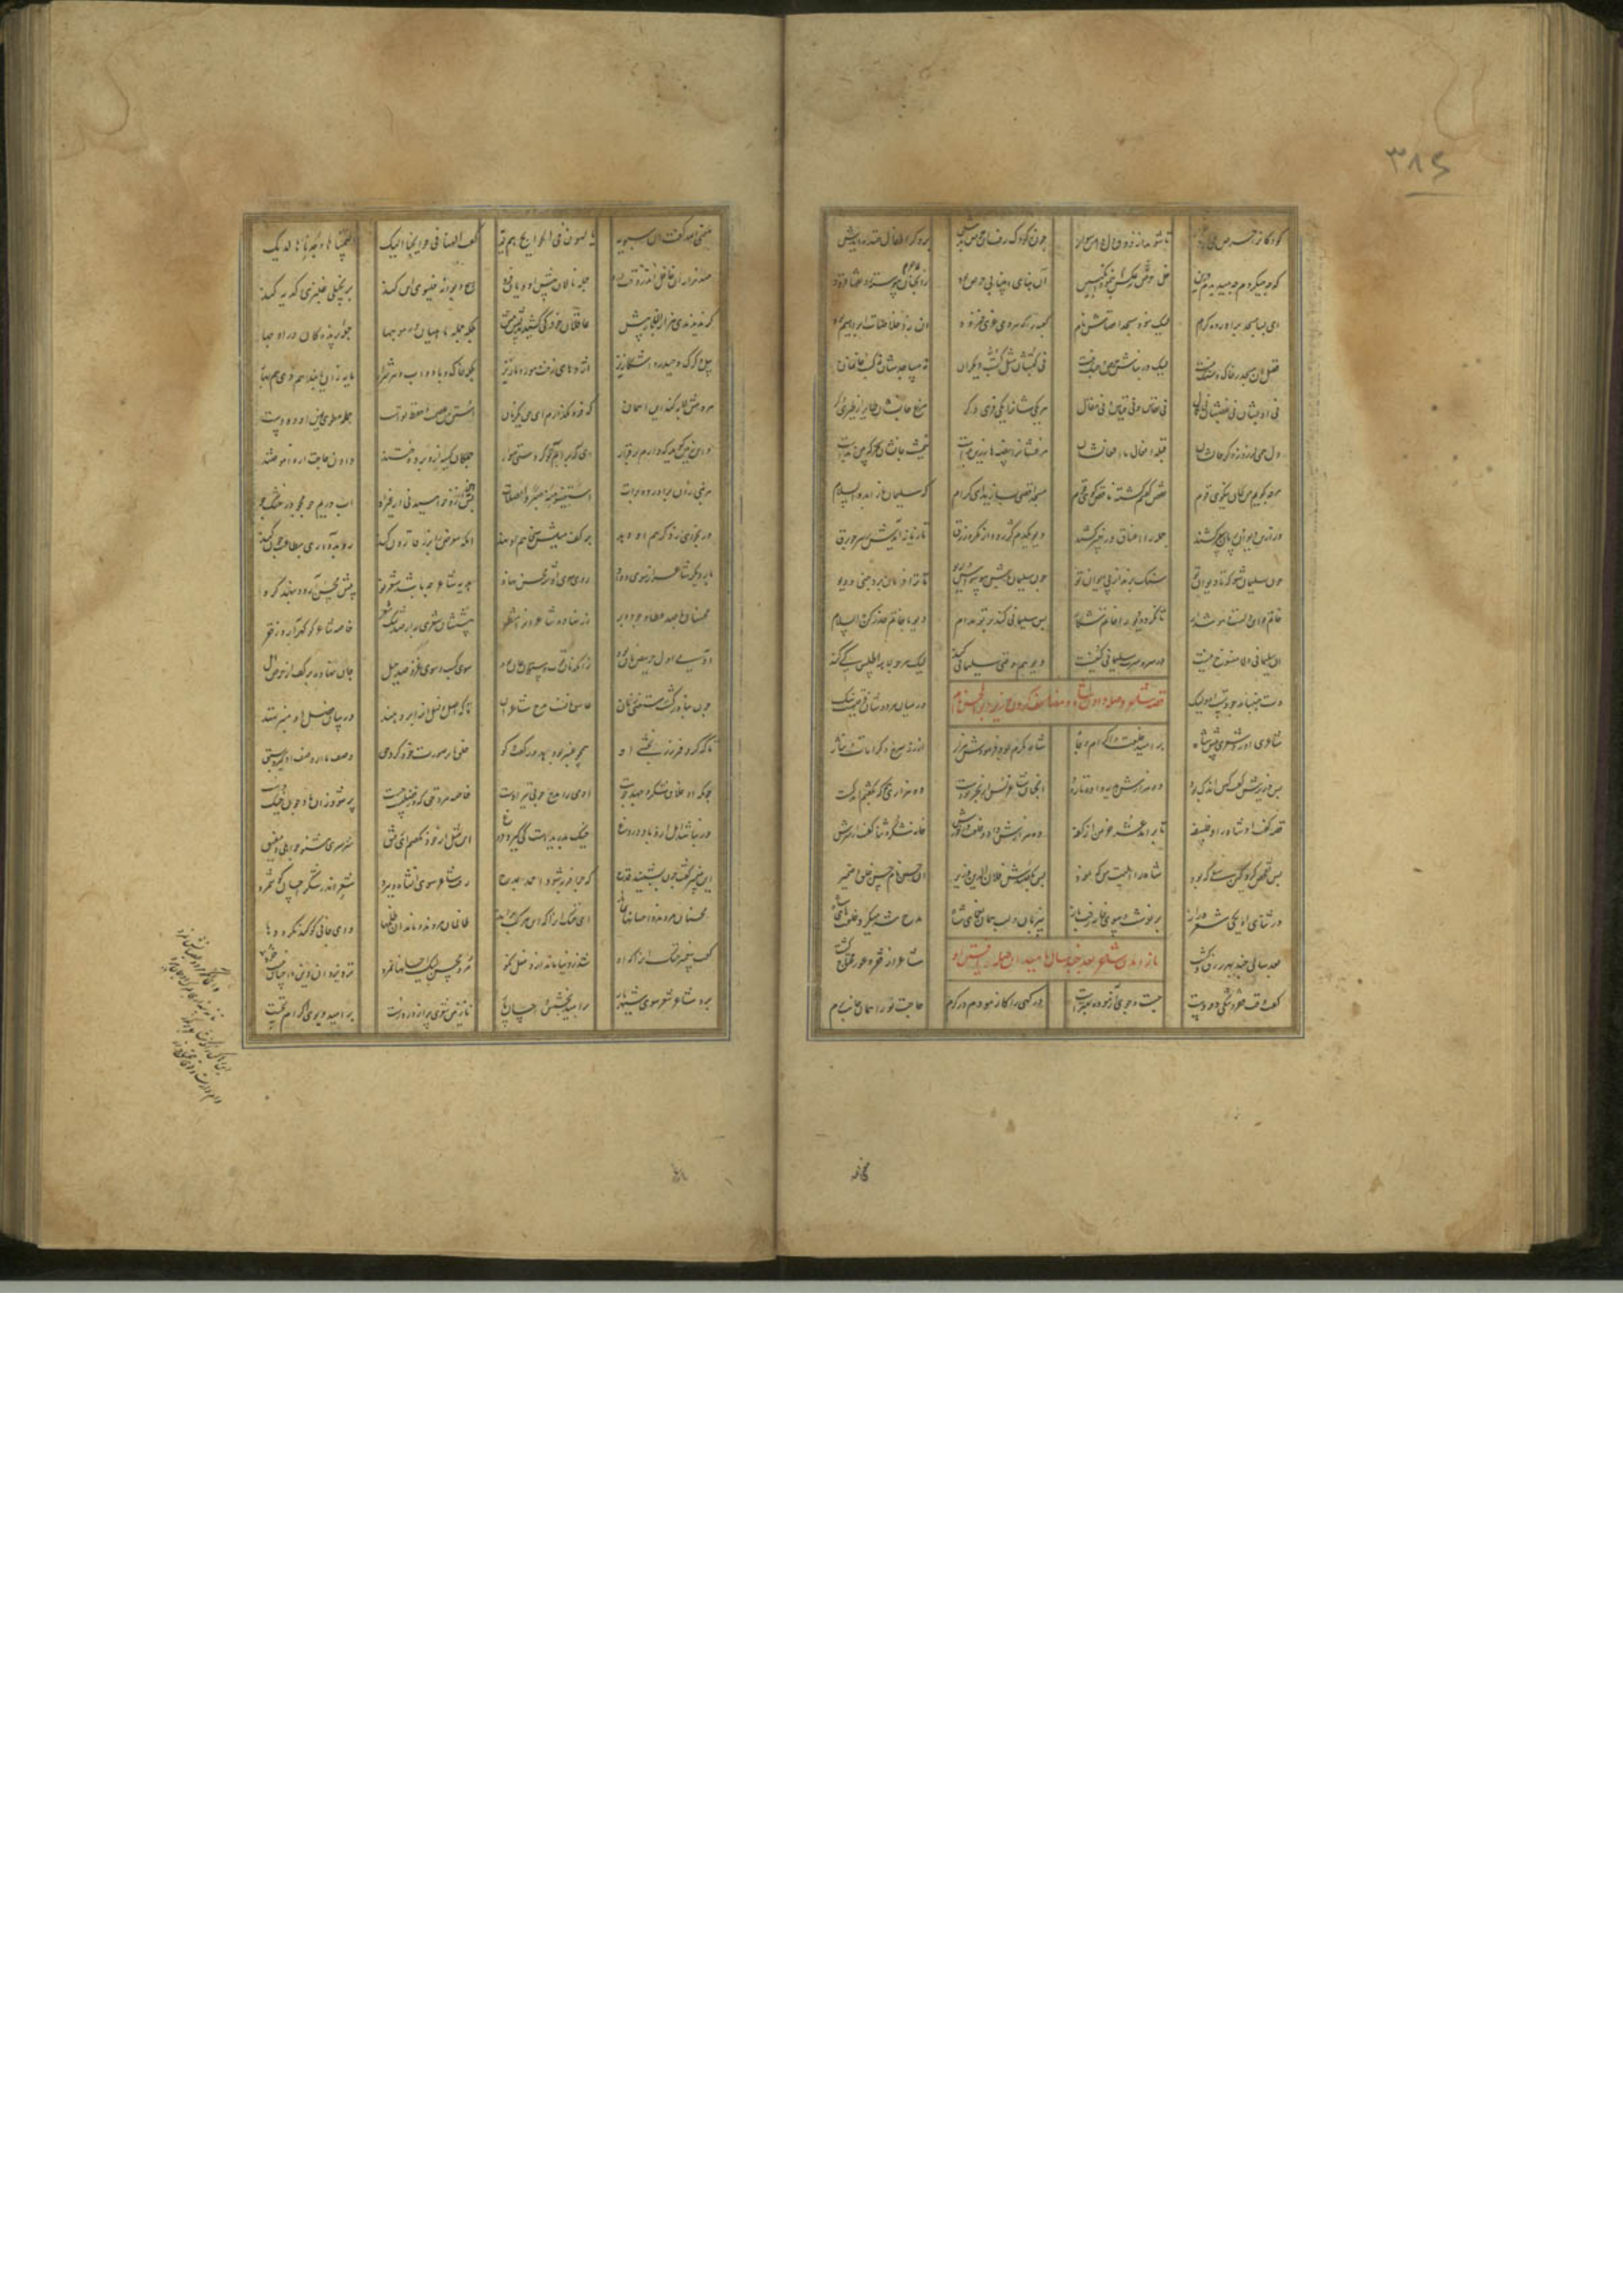 ۳۸۴
کودکانرا حرص می آرد غرار تا شوند از ذوق دل دامن سوار چون ز کودک رفت آن حرص بدش بر دگر اطفال خنده آیدش
که چه میکردم چه میدیدم درین خل ز عکس حرص بنمود انگبین آن بنای انبیا بی حرص بود زان چنان پیوسته رونقها فزود
ای بسا مسجد برآورده کرام لیک نبود مسجد اقصاش نام کعبه را که هر دمی عزی فزود آن ز اخلاصات ابراهیم بود
فضل آن مسجد ز خاک و سنگ نیست لیک در بناش حرص و جنگ نیست نی کتبشان مثل کتب دیگران نی مساجدشان نی کسب و خان و مان
نی ادبشان نی غضبشان نی نکال نی نعاس و نی قیاس و نی مقال هر یکیشان را یکی فری دگر مرغ جانشان طایر از پری دگر
دل همی لرزد ز ذکر حالشان قبله افعال ما افعالشان مرغشان را بیضه ها زرین بدست نیم شب جانشان سحرگه بین شدست
هر چه گویم من بجان نیکوی قوم نقص گفتم گشته ناقص گوی قوم مسجد اقصی بسازید ای کرام که سلیمان باز آمد والسلام
ور ازین دیوان و پریان سر کشند جمله را املاک در چنبر کشند دیو یکدم کژ رود از مکر و زرق تازیانه آیدش بر سر چو برق
چون سلیمان شو که تا دیوان تو سنگ برند از پی ایوان تو چون سلیمان باش بی وسواس و ریو تا ترا فرمان برد جنی و دیو
خاتم تو این دلست و هوش دار تا نگردد دیو را خاتم شکار پس سلیمانی کند بر تو مدام دیو با خاتم حذر کن والسلام
آن سلیمانی دلا منسوخ نیست در سر و سرت سلیمانی کنیست دیو هم وقتی سلیمانی کند لیک هر جولاهه اطلس کی تند
دست جنباند چو دست او ولیک در میان هر دوشان فرقیست نیک
قصه شاعر و صله دادن شاه و مضاعف کردن آن وزیر بوالحسن نام
شاعری آورد شعری پیش شاه بر امید خلعت و اکرام و جاه شاه مکرم بود فرمودش هزار از زر سرخ و کرامات و نثار
پس وزیرش گفت کین اندک بود ده هزارش هدیه وا ده تا رود ده هزاری که بگفتم اندکست
قصه گفت او شاه را و فلسفه تا بر آمد عشر خرمن از کفه ده هزارش داد و خلعت درخورش خانه شکر و ثنا گشت آن سرش
پس تفحص کرد کین سعی که بود شاه را اهلیت من کی نمود پس بگفتندش فلان الدین وزیر آن حسن نام و حسن خلق و ضمیر
در ثنای او یکی شعری دراز بر نبشت و سوی خانه رفت باز بی زبان و لب همان نعمای شاه مدح شه میکرد و خلعتهای شاه
باز آمدن شاعر بعد چند سال بامید آن صله
بعد سالی چند بهر رزق و کشت شاعر از فقر و عوز محتاج گشت
گفت وقت فقر و تنگی دو دست جست و جوی آزموده بهترست درگهی را کازمودم در کرم حاجت نو را همان جانب برم
معنی الله گفت آن سیبویه یولهون فی الحوایج هم لدیه گفت الهنا فی حوایجنا الیک والتمسناها وجدناها لدیک
صد هزاران عاقل اندر وقت درد جمله نالان پیش آن دیان فرد هیچ دیوانه فلیوی این کند بر بخیلی عاجزی کدیه تند
گر ندیدندی هزاران بار بیش عاقلان بلکه جمله ماهیان در موجها جمله پرندگان در اوجها
پیل و گرگ و حیدر و اشکار نیز اژدهای زفت و مور و مار نیز بلکه خاک و باد و آب و هر شرار مایه زو یابند هم دی هم بهار
هر دمش لابه کند این آسمان که فرو مگذارم ای حق یک زمان استن من عصمت و حفظ تو است جمله مطوی یمین آن دو دست
وین زمین گوید که دارم بر قرار ای که بر آبم تو کردستی سوار جملگان کیسه ازو بر دوختند دادن حاجت ازو آموختند
هر نبی زو بر آورده برات استعینوا منه صبرا او صلات هین ازو خواهید نی از غیر او آب در یم جو مجو در خشک جو
ور بخواهی از دگر هم او دهد بر کف میلش سخا هم او نهد آنکه معرض را ز زر قارون کند رو بدو آری بطاعت چون کند
بار دیگر شاعر از سودای داد روی سوی آن شه محسن نهاد هدیه شاعر چه باشد شعر نو پیش محسن آرد و بنهد گرو
محسنان با صد عطا و جود و بر زر نهاده شاعران را منتظر پیششان شعری به از صد تنگ شعر خاصه شاعر کو گهر آرد ز قعر
آدمی اول حریص نان بود زانکه قوت و نان ستون جان بود سوی کسب و سوی غصب و صد حیل جان نهاده بر کف از حرص و امل
چون بنادر گشت مستغنی ز نان عاشق نامست و مدح شاعران تا که اصل و فصل او را بر دهند در بیان فضل او منبر نهند
تا که کر و فر و زر بخشی او همچو عنبر بو دهد در گفت و گو خلق ما بر صورت خود کرد حق وصف ما از وصف او گیرد سبق
چونکه آن خلاق شکر و حمد جوست آدمی را مدح جویی نیز خوست خاصه مرد حق که در فضلست چست پر شود زان باد چون خیک درست
ور نباشد اهل زان باد دروغ خیک بدریدست کی گیرد فروغ این مثل از خود نگفتم ای رفیق سرسری مشنو چو اهلی و مفیق
این پیمبر گفت چون بشنید قدح که چرا فربه شود احمد بمدح رفت شاعر سوی آن شاه و ببرد شعر اندر شکر احسان کان نمرد
محسنان مردند و احسانها بماند ای خنک آن را که این مرکب براند ظالمان مردند و ماند آن ظلمها وای جانی کو کند مکر و دها
گفت پیغمبر خنک آن را که او شد ز دنیا ماند ازو فعل نکو مرد محسن لیک احسانش نمرد نزد یزدان دین و احسان نیست خرد
برد شاعر شعر سوی شهریار بر امید بخشش و احسان پار نازنین شعری پر از در درست بر امید و بوی اکرام نخست